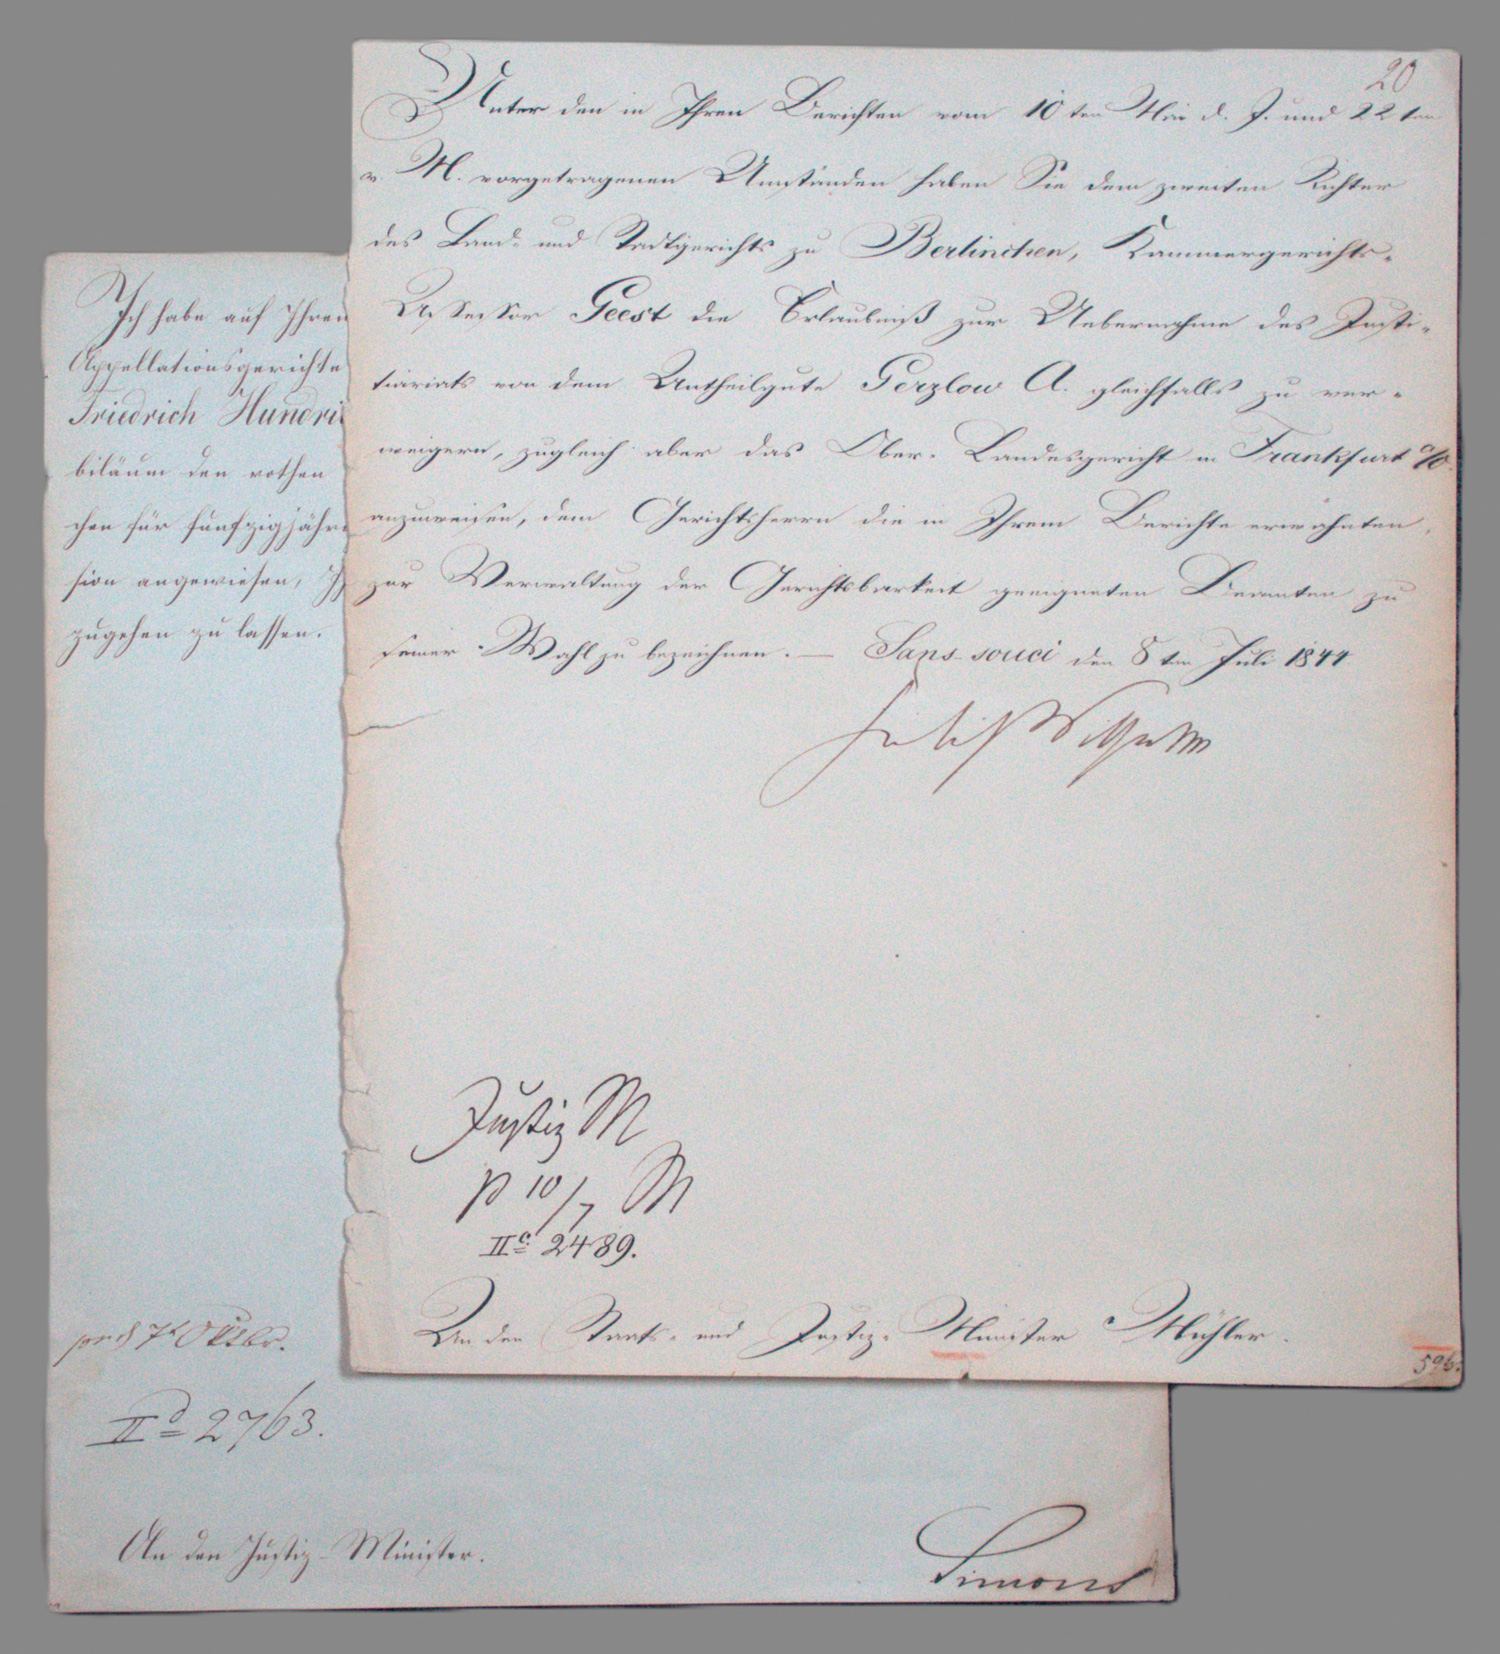 20
Unter den in Ihren Berichten vom 10ten Mai d. J. und 22ten
v. M. vorgetragenen Umständen haben Sie dem zweiten Richter
des Land- und Stadtgerichts zu Berlinchen, Kammergerichts-
Assessor Geest die Erlaubniß zur Uebernahme des Justi-
tiariats von dem Antheilgute Gerzlow A. gleichfalls zu ver-
weigern, zugleich aber das Ober-Landesgericht in Frankfurt a/O
anzuweisen, dem Gerichtsherrn die in Ihrem Berichte erwähnten,
zur Verwaltung der Gerichtsbarkeit geeigneten Beamten zu
seiner Wahl zu bezeichnen. — Sans-souci den 8ten Juli 1844
Friedrich Wilhelm
Justiz M
p 10/7 M
IIc 2489.
An den Staats- und Justiz-Minister Mühler.
Ich habe auf Ihren
Appellationsgerichts
Friedrich Hundri
biläum den rothen
chen für fünfzigjähr
sion angewiesen,
zugehen zu lassen.
7t Oktbr.
IId 2763.
An den Justiz-Minister.
Simons